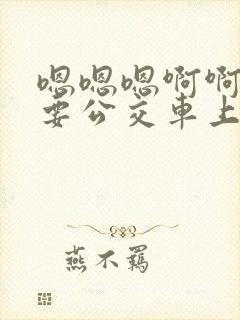 嗯嗯嗯啊啊
要公交车上
燕不羁